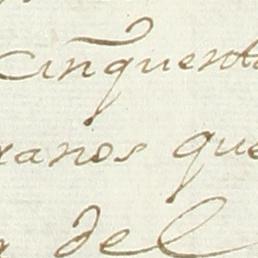 cinquenta
anos que
del